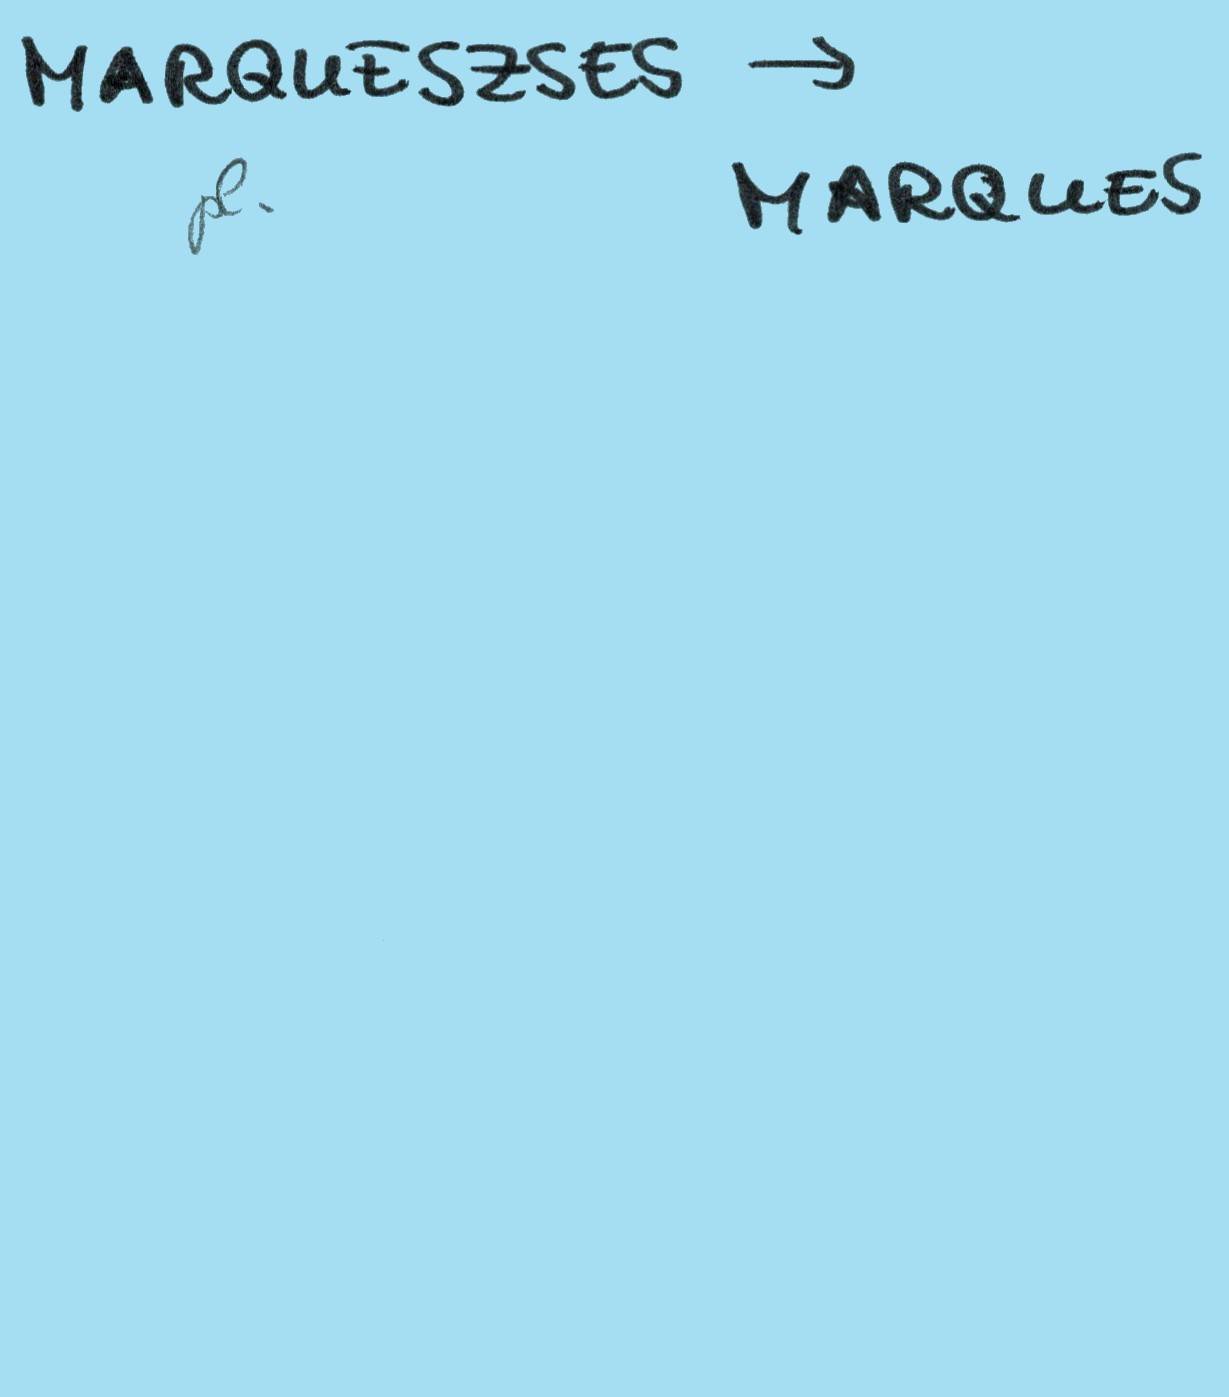 MARQUESZSES →
pl.
MARQUES